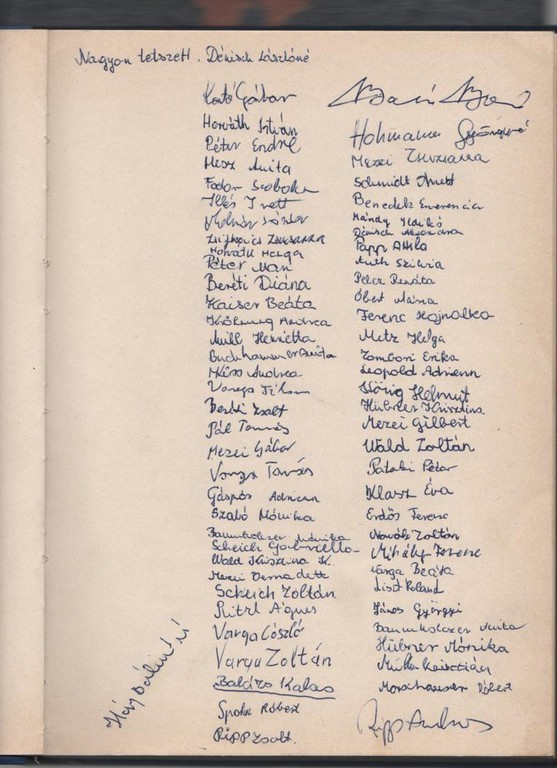 Nagyon tetszett. Dénisch Lászlóné
Kató Gábor
Horváth István
Péter Endre
Mesz Anita
Fodor Szabolcs
Illés Ivett
Molnár Sándor
Zsuzsanna
Horváth Helga
Péter Mari
Beréti Diána
Kaiser Beáta
Andrea
Mill Henrietta
Buchhammer Anita
Kiss Andrea
Varga
Zsolt
Pál Tamás
Mezei Gábor
Varga Tamás
Gáspár Adrienn
Szabó Mónika
Baumholczer Mónika
Scheich Gabriella
Wald Krisztina K.
Mezei Bernadett
Scheich Zoltán
Ritzl Ágnes
Varga László
Varga Zoltán
Balázs Kalas
Spohn Róbert
Ripp Zsolt.
Hohmann Gyöngyvé
Mezei Zsuzsanna
Schmidt Anett
Benedek Emerencia
Mándy Ildikó
Dénisch Alexandra
Papp Attila
Auth Szilvia
Péter Renáta
Óbert Mária
Ferenc Hajnalka
Metz Helga
Zombori Erika
Leopold Adrienn
Störig Helmut
Hübner Krisztina
Mezei Gilbert
Wald Zoltán
Pataki Péter
Klasz Éva
Erdős Ferenc
Novák Zoltán
Mihály Ferenc
Varga Beáta
Liszt Roland
János Györgyi
Baumholczer Anita
Hübner Mónika
Müller Krisztián
Morschauser Róbert
Ripp Andrea